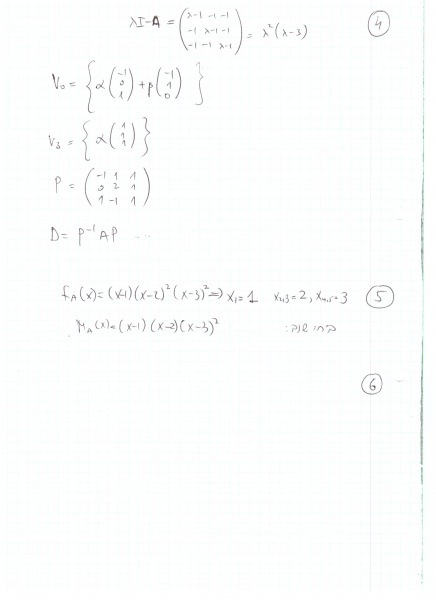 ④
λI-A = (λ-1 -1 -1 / -1 λ-1 -1 / -1 -1 λ-1) = λ²(λ-3)
V₀ = { α(-1 0 1) + β(-1 1 0) }
V₃ = { α(1 1 1) }
P = (-1 1 1 / 0 2 1 / 1 -1 1)
D = P⁻¹AP ...
⑤
f_A(x) = (x-1)(x-2)²(x-3)² ⇒ x₁=1 x₂,₃=2, x₄,₅=3
M_A(x) = (x-1)(x-2)(x-3)²
⑥